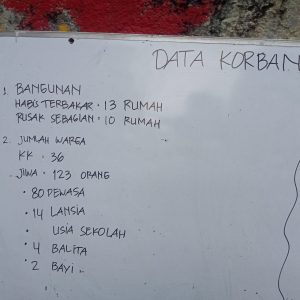 DATA KORBAN
1. BANGUNAN
HABIS TERBAKAR : 13 RUMAH
RUSAK SEBAGIAN : 10 RUMAH
2. JUMLAH WARGA
KK : 36
JIWA : 123 ORANG
• 80 DEWASA
• 14 LANSIA
• USIA SEKOLAH
• 4 BALITA
2 BAYI